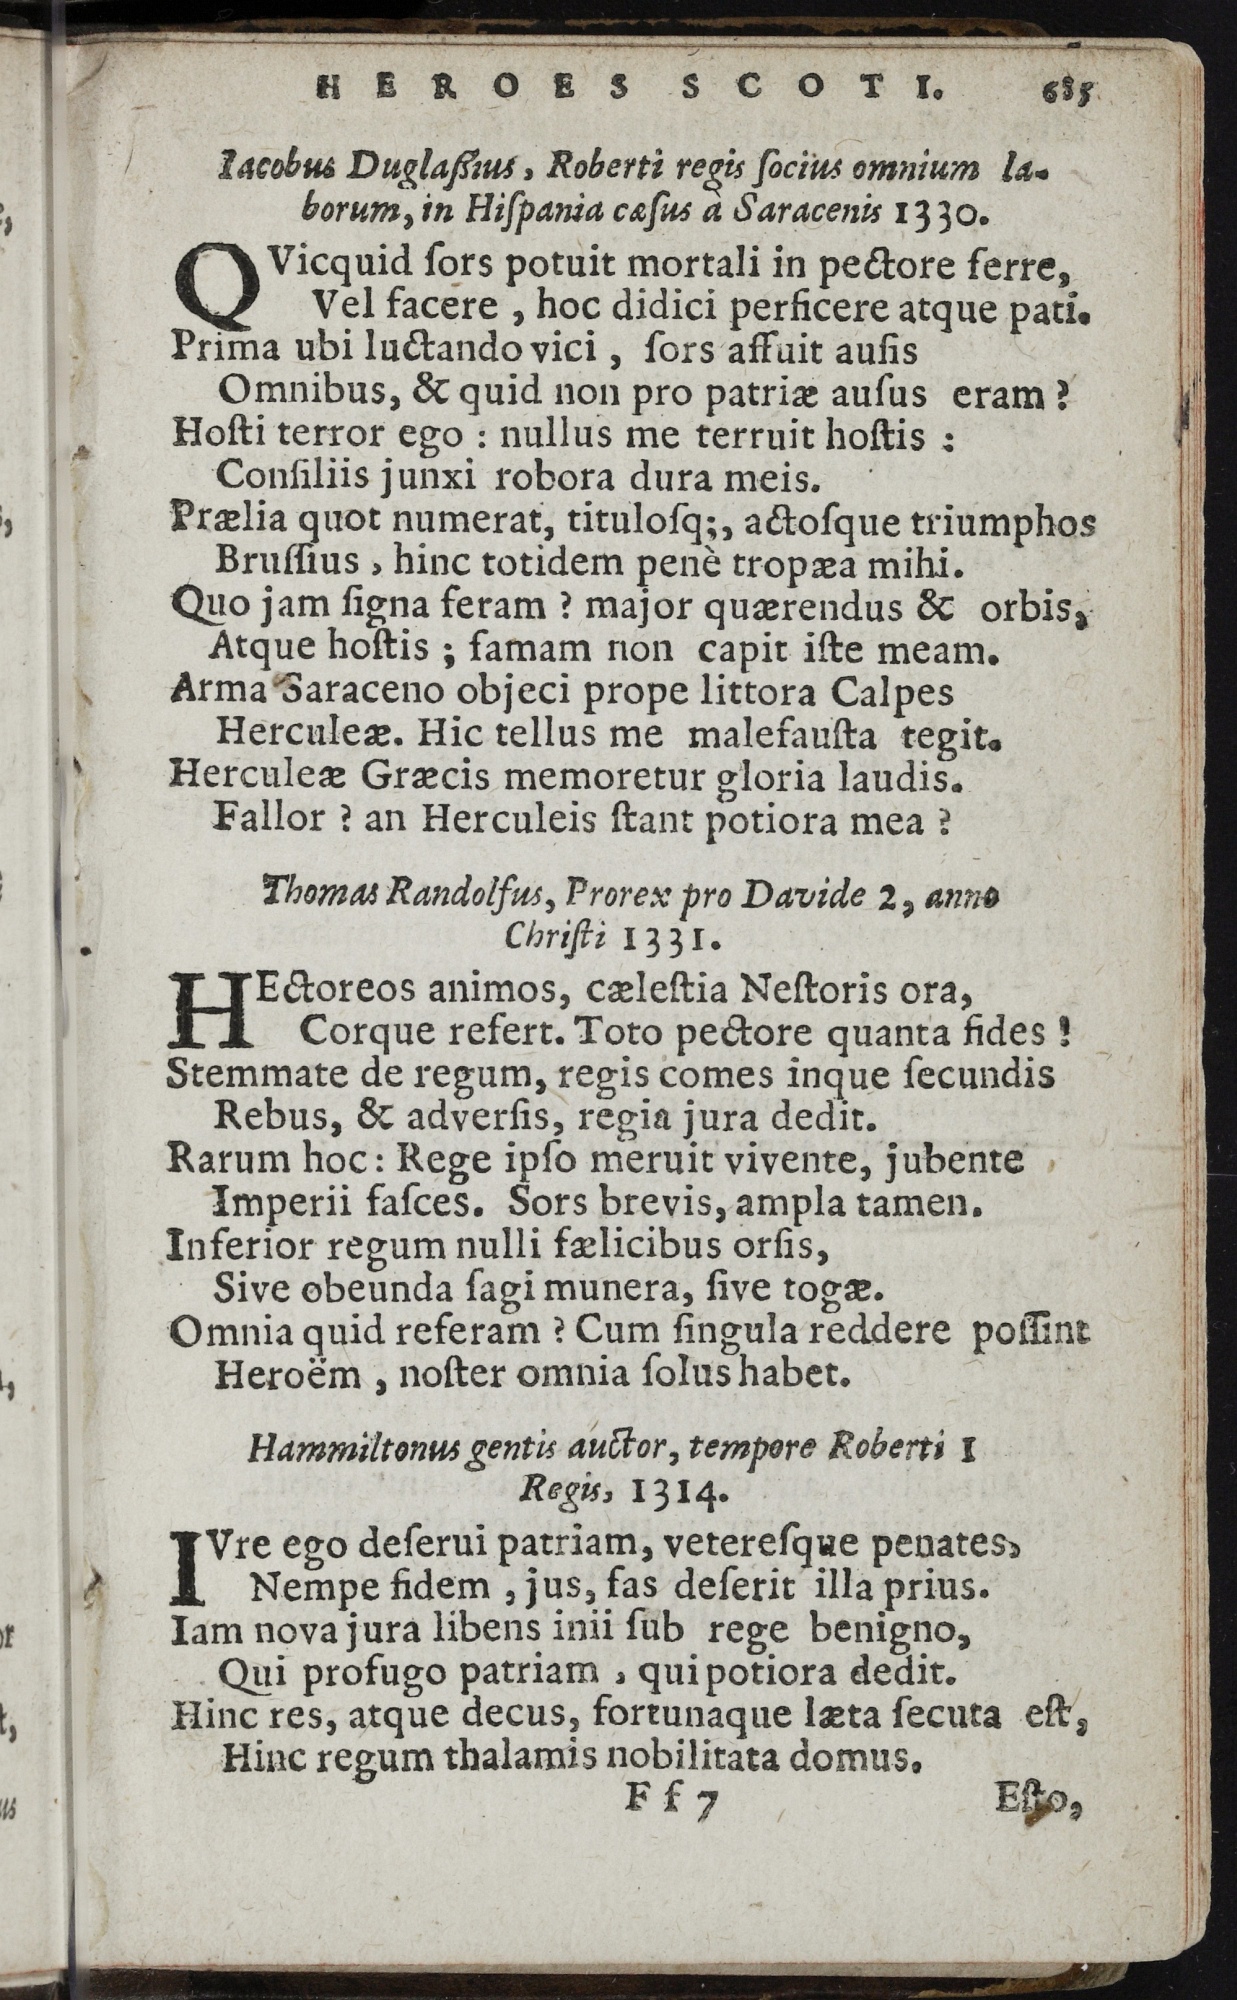 HEROES SCOTI. 685
Iacobus Duglaßius, Roberti regis ſocius omnium la-
borum, in Hiſpania cæſus à Saracenis 1330.
QVicquid ſors potuit mortali in pectore ferre,
Vel facere, hoc didici perficere atque pati.
Prima ubi luctando vici, ſors affuit auſis
Omnibus, & quid non pro patriæ auſus eram?
Hoſti terror ego: nullus me terruit hoſtis:
Conſiliis junxi robora dura meis.
Prælia quot numerat, tituloſq;, actoſque triumphos
Bruſſius, hinc totidem penè tropæa mihi.
Quo jam ſigna feram? major quærendus & orbis,
Atque hoſtis; famam non capit iſte meam.
Arma Saraceno objeci prope littora Calpes
Herculeæ. Hic tellus me malefauſta tegit.
Herculeæ Græcis memoretur gloria laudis.
Fallor? an Herculeis ſtant potiora mea?
Thomas Randolfus, Prorex pro Davide 2, anno
Chriſti 1331.
HEctoreos animos, cæleſtia Neſtoris ora,
Corque refert. Toto pectore quanta fides!
Stemmate de regum, regis comes inque ſecundis
Rebus, & adverſis, regia jura dedit.
Rarum hoc: Rege ipſo meruit vivente, jubente
Imperii faſces. Sors brevis, ampla tamen.
Inferior regum nulli fælicibus orſis,
Sive obeunda ſagi munera, ſive togæ.
Omnia quid referam? Cum ſingula reddere poſſint
Heroëm, noſter omnia ſolus habet.
Hammiltonus gentis auctor, tempore Roberti 1
Regis, 1314.
IVre ego deſerui patriam, vetereſque penates,
Nempe fidem, jus, fas deſerit illa prius.
Iam nova jura libens inii ſub rege benigno,
Qui profugo patriam, qui potiora dedit.
Hinc res, atque decus, fortunaque læta ſecuta eſt,
Hinc regum thalamis nobilitata domus.
Ff 7 Eſto,